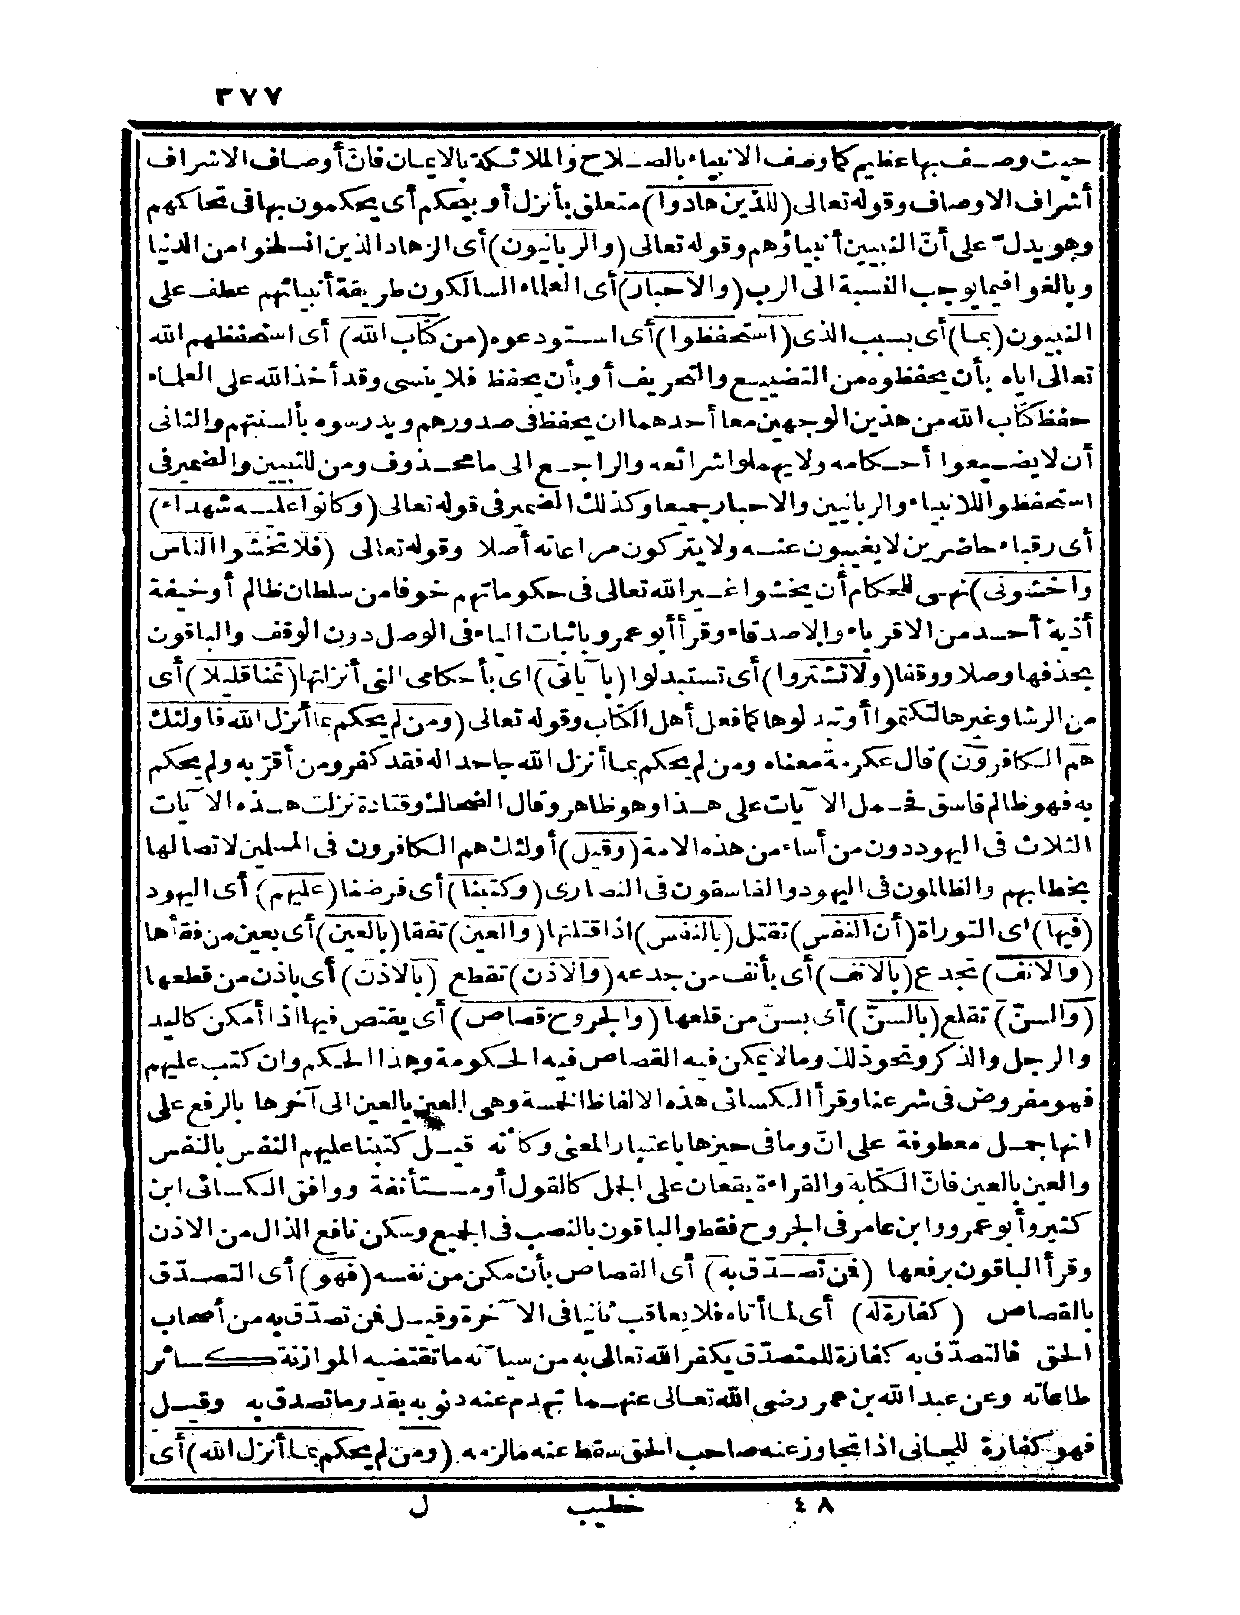 ٣٧٧
حيث وصف بها عظيم كما وصف الانبياء بالصلاح والملائكة بالايمان فان أوصاف الاشراف
أشراف الاوصاف وقوله تعالى (للذين هادوا) متعلق بأنزل أو بيحكم أى يحكمون بها فى تحاكمهم
وهو يدلّ على أنّ النبيين أنبياؤهم وقوله تعالى (والربانيون) أى الزهاد الذين انسلخوا من الدنيا
وبالغوا فيما يوجب النسبة الى الرب (والاحبار) أى العلماء السالكون طريقة أنبيائهم عطف على
النبيون (بما) أى بسبب الذى (استحفظوا) أى استودعوه (من كتاب الله) أى استحفظهم الله
تعالى اياه بأن يحفظوه من التضييع والتحريف أو بأن يحفظ فلا ينسى وقد أخذ الله على العلماء
حفظ كتاب الله من هذين الوجهين معا أحدهما ان يحفظ فى صدورهم ويدرسوه بألسنتهم والثانى
أن لا يضيعوا أحكامه ولا يهملوا شرائعه والراجع الى ما محذوف ومن للتبيين والضمير فى
استحفظوا للانبياء والربانيين والاحبار جميعا وكذلك الضمير فى قوله تعالى (وكانوا عليه شهداء)
أى رقباء حاضرين لا يغيبون عنه ولا يتركون مراعاته أصلا وقوله تعالى (فلا تخشوا الناس
واخشونى) نهى للحكام أن يخشوا غير الله تعالى فى حكوماتهم خوفا من سلطان ظالم أو خيفة
أذية أحد من الاقرباء والاصدقاء وقرأ أبو عمرو باثبات الياء فى الوصل دون الوقف والباقون
بحذفها وصلا ووقفا (ولا تشتروا) أى تستبدلوا (بآياتى) اى بأحكامى التى أنزلتها (ثمنا قليلا) أى
من الرشا وغيرها لتكتموا أو تبدلوها كما فعل أهل الكتاب وقوله تعالى (ومن لم يحكم بما أنزل الله فأولئك
هم الكافرون) قال عكرمة معناه ومن لم يحكم بما أنزل الله جاحدا له فقد كفر ومن أقرّ به ولم يحكم
به فهو ظالم فاسق فحمل الآيات على هذا وهو ظاهر وقال الضحاك وقتادة نزلت هذه الآيات
الثلاث فى اليهود دون من أساء من هذه الامة (وقيل) أولئك هم الكافرون فى المسلمين لاتصالها
بخطابهم والظالمون فى اليهود والفاسقون فى النصارى (وكتبنا) أى فرضنا (عليهم) أى اليهود
(فيها) اى التوراة (أن النفس) تقتل (بالنفس) اذا قتلتها (والعين) تفقا (بالعين) أى بعين من فقأها
(والانف) تجدع (بالانف) أى بأنف من جدعه (والاذن) تقطع (بالاذن) أى باذن من قطعها
(والسنّ) تقلع (بالسنّ) أى بسنّ من قلعها (والجروح قصاص) أى يقتص فيها اذا أمكن كاليد
والرجل والذكر ونحو ذلك وما لا يمكن فيه القصاص فيه الحكومة وهذا الحكم وان كتب عليهم
فهو مفروض فى شرعنا وقرأ الكسائى هذه الالفاظ الخمسة وهى العين بالعين الى آخرها بالرفع على
انها جمل معطوفة على انّ وما فى حيزها باعتبار المعنى وكأنه قيل كتبنا عليهم النفس بالنفس
والعين بالعين فانّ الكتابة والقراءة يقعان على الجمل كالقول أو مستأنفة ووافق الكسائى ابن
كثير وأبو عمرو وابن عامر فى الجروح فقط والباقون بالنصب فى الجميع وسكن نافع الذال من الاذن
وقرأ الباقون برفعها (فمن تصدّق به) أى القصاص بأن مكن من نفسه (فهو) أى التصدّق
بالقصاص (كفارة له) أى لما أتاه فلا يعاقب ثانيا فى الآخرة وقيل فمن تصدّق به من أصحاب
الحق فالتصدّق به كفارة للمتصدّق يكفر الله تعالى به من سيآته ما تقتضيه الموازنة كسائر
طاعاته وعن عبد الله بن عمر رضى الله تعالى عنهما تهدم عنه ذنوبه بقدر ما تصدق به وقيل
فهو كفارة للجانى اذا تجاوز عنه صاحب الحق سقط عنه ما لزمه (ومن لم يحكم بما أنزل الله) أى
٤٨ خطيب ل